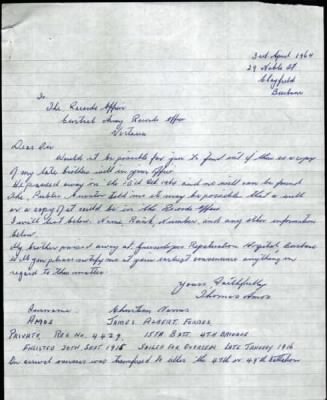 3rd April 1964
29 Noble St
Clayfield
Brisbane
To
The Records Officer
Central Army Records Office
Victoria
Dear Sir
Would it be possible for you to find out if there is a copy
of my late brothers will in your Office
He passed away on the 15th Oct 1963 and no will can be found
The Public Curator told me it may be possible that a will
or a copy of it will be in the Records Office
I will list below. Name, Rank, Number, and any other information
below.
My brother passed away at Greenslopes Repatriation Hospital, Brisbane
Will you please notify me at your earliest convenience anything in
regard to this matter
Yours Faithfully
Thomas Amos
Surname Christian Names
AMOS JAMES ALBERT
PRIVATE REG NO. 4429. 15TH BATT 4TH BRIGADE
ENLISTED 20TH SEPT 1915 SAILED FOR OVERSEAS LATE JANUARY 1916
On arrival overseas was transferred to either the 47th or 48th Battalion